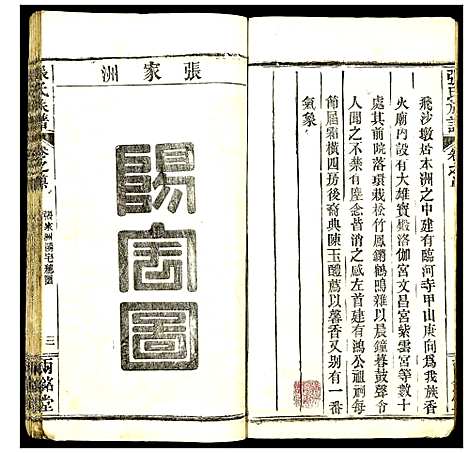 張氏族譜
飛沙墩岩本洲之中建有臨河寺甲山庚向為我族香
火廟內設有大雄寶殿洛伽宮文昌宮紫雲宮等數十
處其前院落環栽松竹鳳鏘鶴鳴雜以晨鐘暮鼓聲令
人聞之不禁有塵念皆消之感左首建有鴻公祖祠每
節屆霜橫四房後裔典陳玉醴薦以馨香又別有一番
氣象
張家洲
陽宅圖
張氏族譜
張家洲陽宅總圖
三
兩銘堂